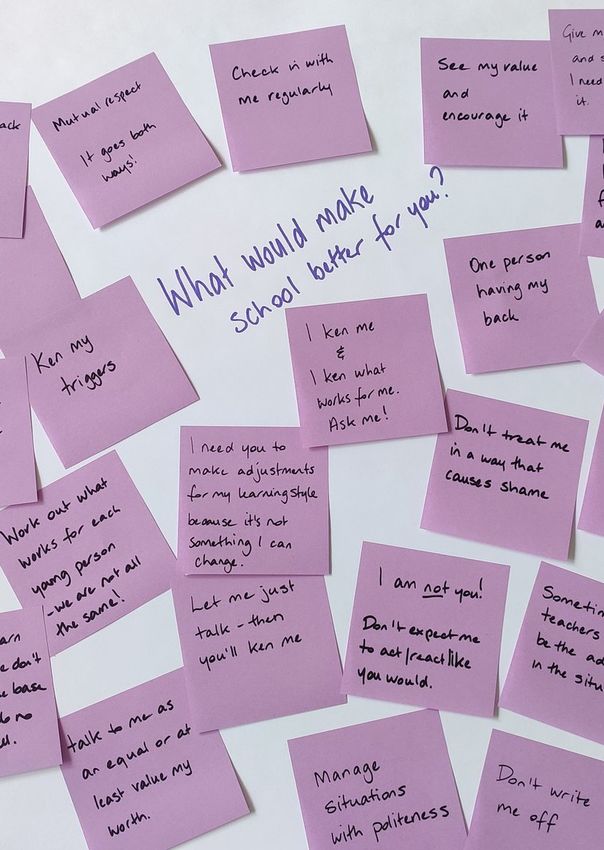 What would make
school better for you?
ack
Mutual respect
It goes both
ways!
Check in with
me regularly
See my value
and
encourage it
Give
and
I need
it.
One person
having my
back
Ken my
triggers
I ken me
&
I ken what
works for me.
Ask me!
Don't treat me
in a way that
causes shame
I need you to
make adjustments
for my learning style
because it's not
something I can
change.
Work out what
works for each
young person
- we are not all
the same!
Let me just
talk - then
you'll ken me
I am not you!
Don't expect me
to act/react like
you would.
teachers
be the
in the
don't
base
no
talk to me as
an equal or at
least value my
worth.
Manage
situations
with politeness
Don't write
me off